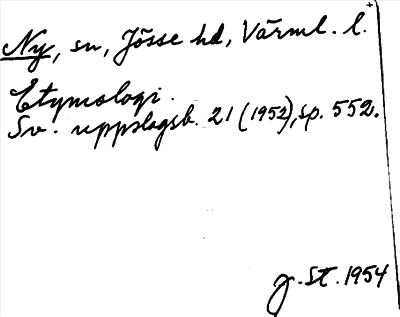 Ny, sn, Jösse hd, Värml. l.+
Etymologi.
Sv. uppslagsb. 21 (1952), sp. 552.
g. St. 1954